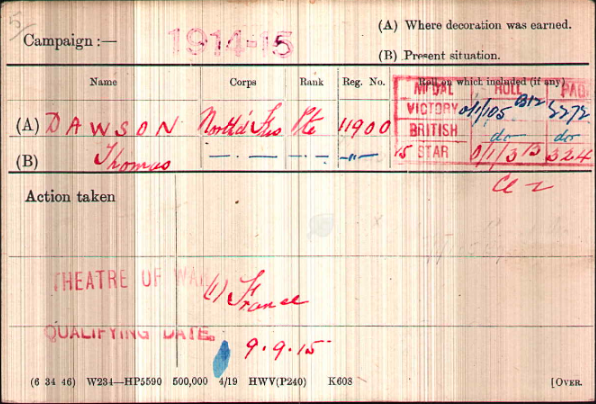 (A) Where decoration was earned.
Campaign :— 1914-15
(B) Present situation.
Name Corps Rank Reg. No. Roll on which included (if any)
MEDAL ROLL PAGE
(A) DAWSON North'd Fus Pte 11900 VICTORY 0/1/105 B12 3272
BRITISH do do
(B) Thomas — " — — " — — " — 15 STAR 0/1/3 B 324
Action taken
THEATRE OF WAR (1) France
QUALIFYING DATE. 9.9.15
(6 34 46) W234—HP5590 500,000 4/19 HWV(P240) K608 [OVER.